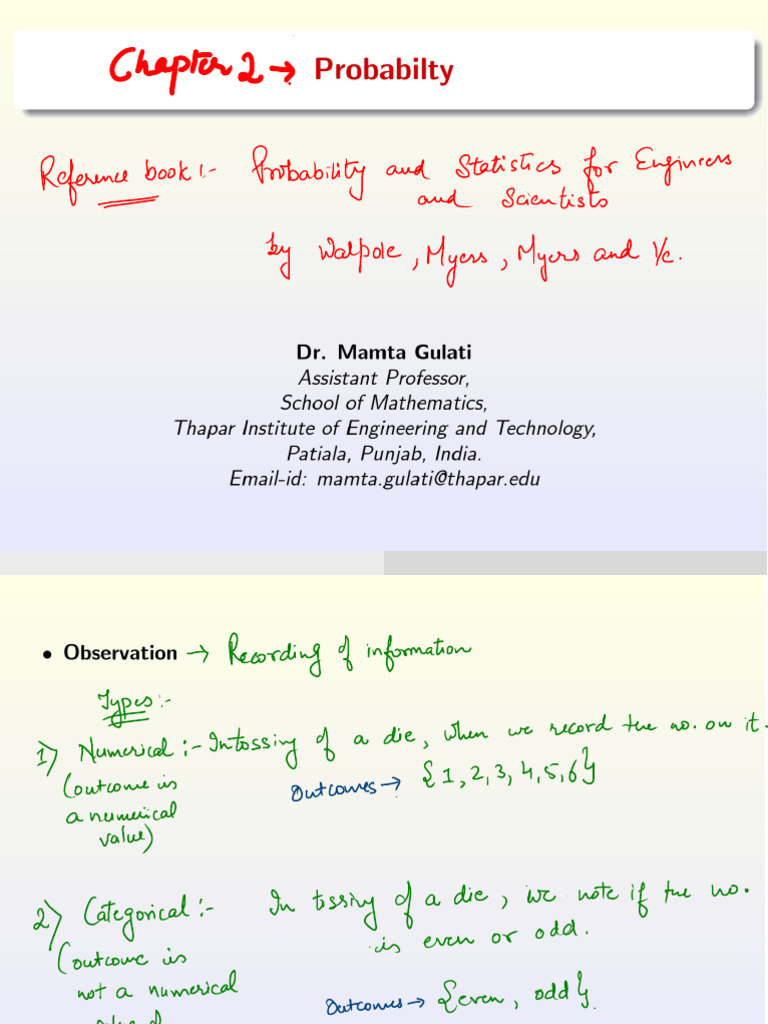 Chapter 2 → Probabilty
Reference book :- Probability and Statistics for Engineers
and Scientists
by Walpole, Myers, Myers and Ye.
Dr. Mamta Gulati
Assistant Professor,
School of Mathematics,
Thapar Institute of Engineering and Technology,
Patiala, Punjab, India.
Email-id: mamta.gulati@thapar.edu
• Observation → Recording of information
Types:-
1) Numerical :- In tossing of a die, when we record the no. on it.
(outcome is
a numerical
value)
Outcomes → {1, 2, 3, 4, 5, 6}
2) Categorical :- In tossing of a die, we note if the no.
is even or odd.
(outcome is
not a numerical
Outcomes → {even, odd}.